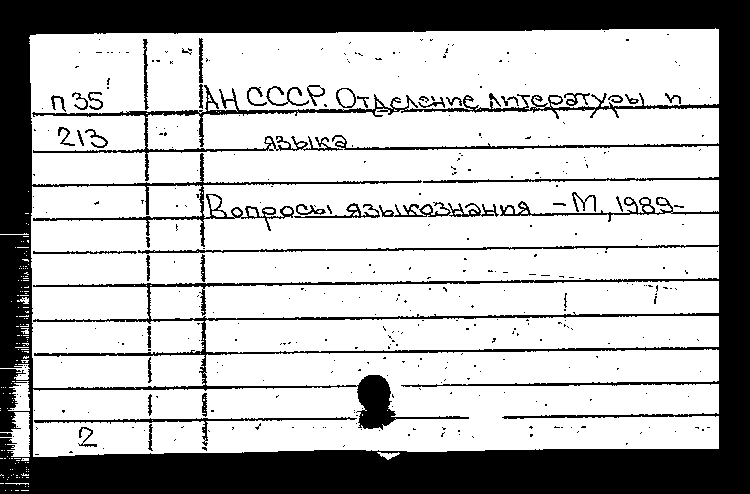 П35 АН СССР. Отделение литературы и
213 языка
Вопросы языкознания - М., 1989-
2